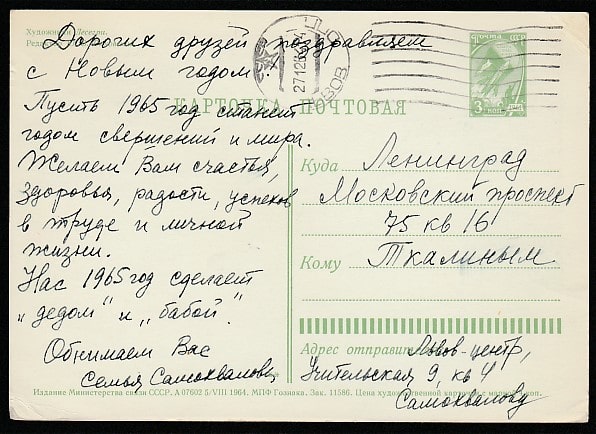 Дорогих друзей поздравляем
с Новым годом!
Пусть 1965 год станет
годом свершений и мира.
Желаем Вам счастья,
здоровья, радости, успехов
в труде и личной
жизни.
Нас 1965 год сделает
„дедом" и „бабой".
Обнимаем Вас
Семья Самохваловых
ПОЧТА СССР
3 коп
27126
КАРТОЧКА ПОЧТОВАЯ
Куда Ленинград
Московский проспект
75 кв 16
Кому Ткалиным
Адрес отправителя: Львов-центр,
Учительская 9, кв 4
Самохвалову
Издание Министерства связи СССР. А 07602 5/VIII 1964. МПФ Гознака. Зак. 11586. Цена художественной карточки с маркой коп.